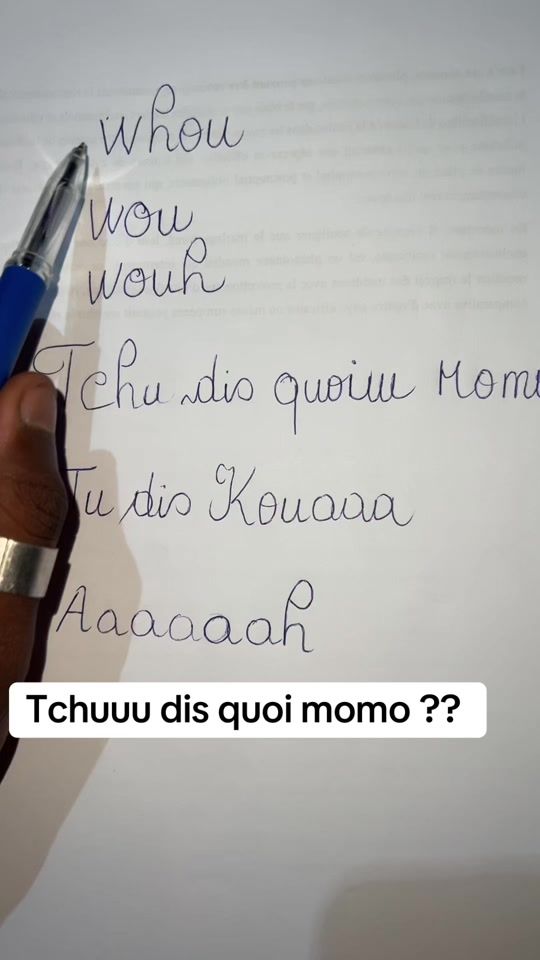 Whou
Wou
Wouh
Tchu dis quoiuu Mom
Tu dis Kouaaa
Aaaaaaah
Tchuuu dis quoi momo ??